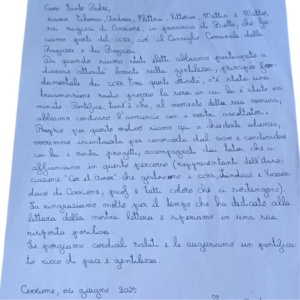 Caro Santo Padre,
siamo Rebecca, Andrea, Elettra, Vittoria, Mattia e Matteo,
sei ragazzi di Cerrione, in provincia di Biella, che fac-
ciamo parte del CCRR, cioè il Consiglio Comunale delle
Ragazze e dei Ragazzi.
Da quando siamo stati eletti abbiamo partecipato a
diverse attività basate sulla gentilezza, principio fon-
damentale di CCRR. Tra queste attività, c'è stata una
trasmissione radio proprio la sera in cui lei è stato no-
minato Pontefice, tant'è che, al momento della sua nomina,
abbiamo condiviso l'annuncio con i nostri ascoltatori.
Proprio per questo motivo siamo qui a chiederle udienza,
vorremmo incontrarla per conoscerla dal vivo e condividere
con lei i nostri progetti, accompagnati dai tutor che ci
affiancano in questo percorso (rappresentanti dell'Asso-
ciazione "Cor et Amor" che gestiscono i CCRR, Sindaco e Vicesin-
daco di Cerrione, prof. e tutti coloro che ci sostengono).
La ringraziamo molto per il tempo che ha dedicato alla
lettura della nostra lettera e speriamo in una sua
risposta positiva.
Le porgiamo cordiali saluti e le auguriamo un pontifica-
to ricco di pace e gentilezza.
Cerrione, 04 giugno 2025